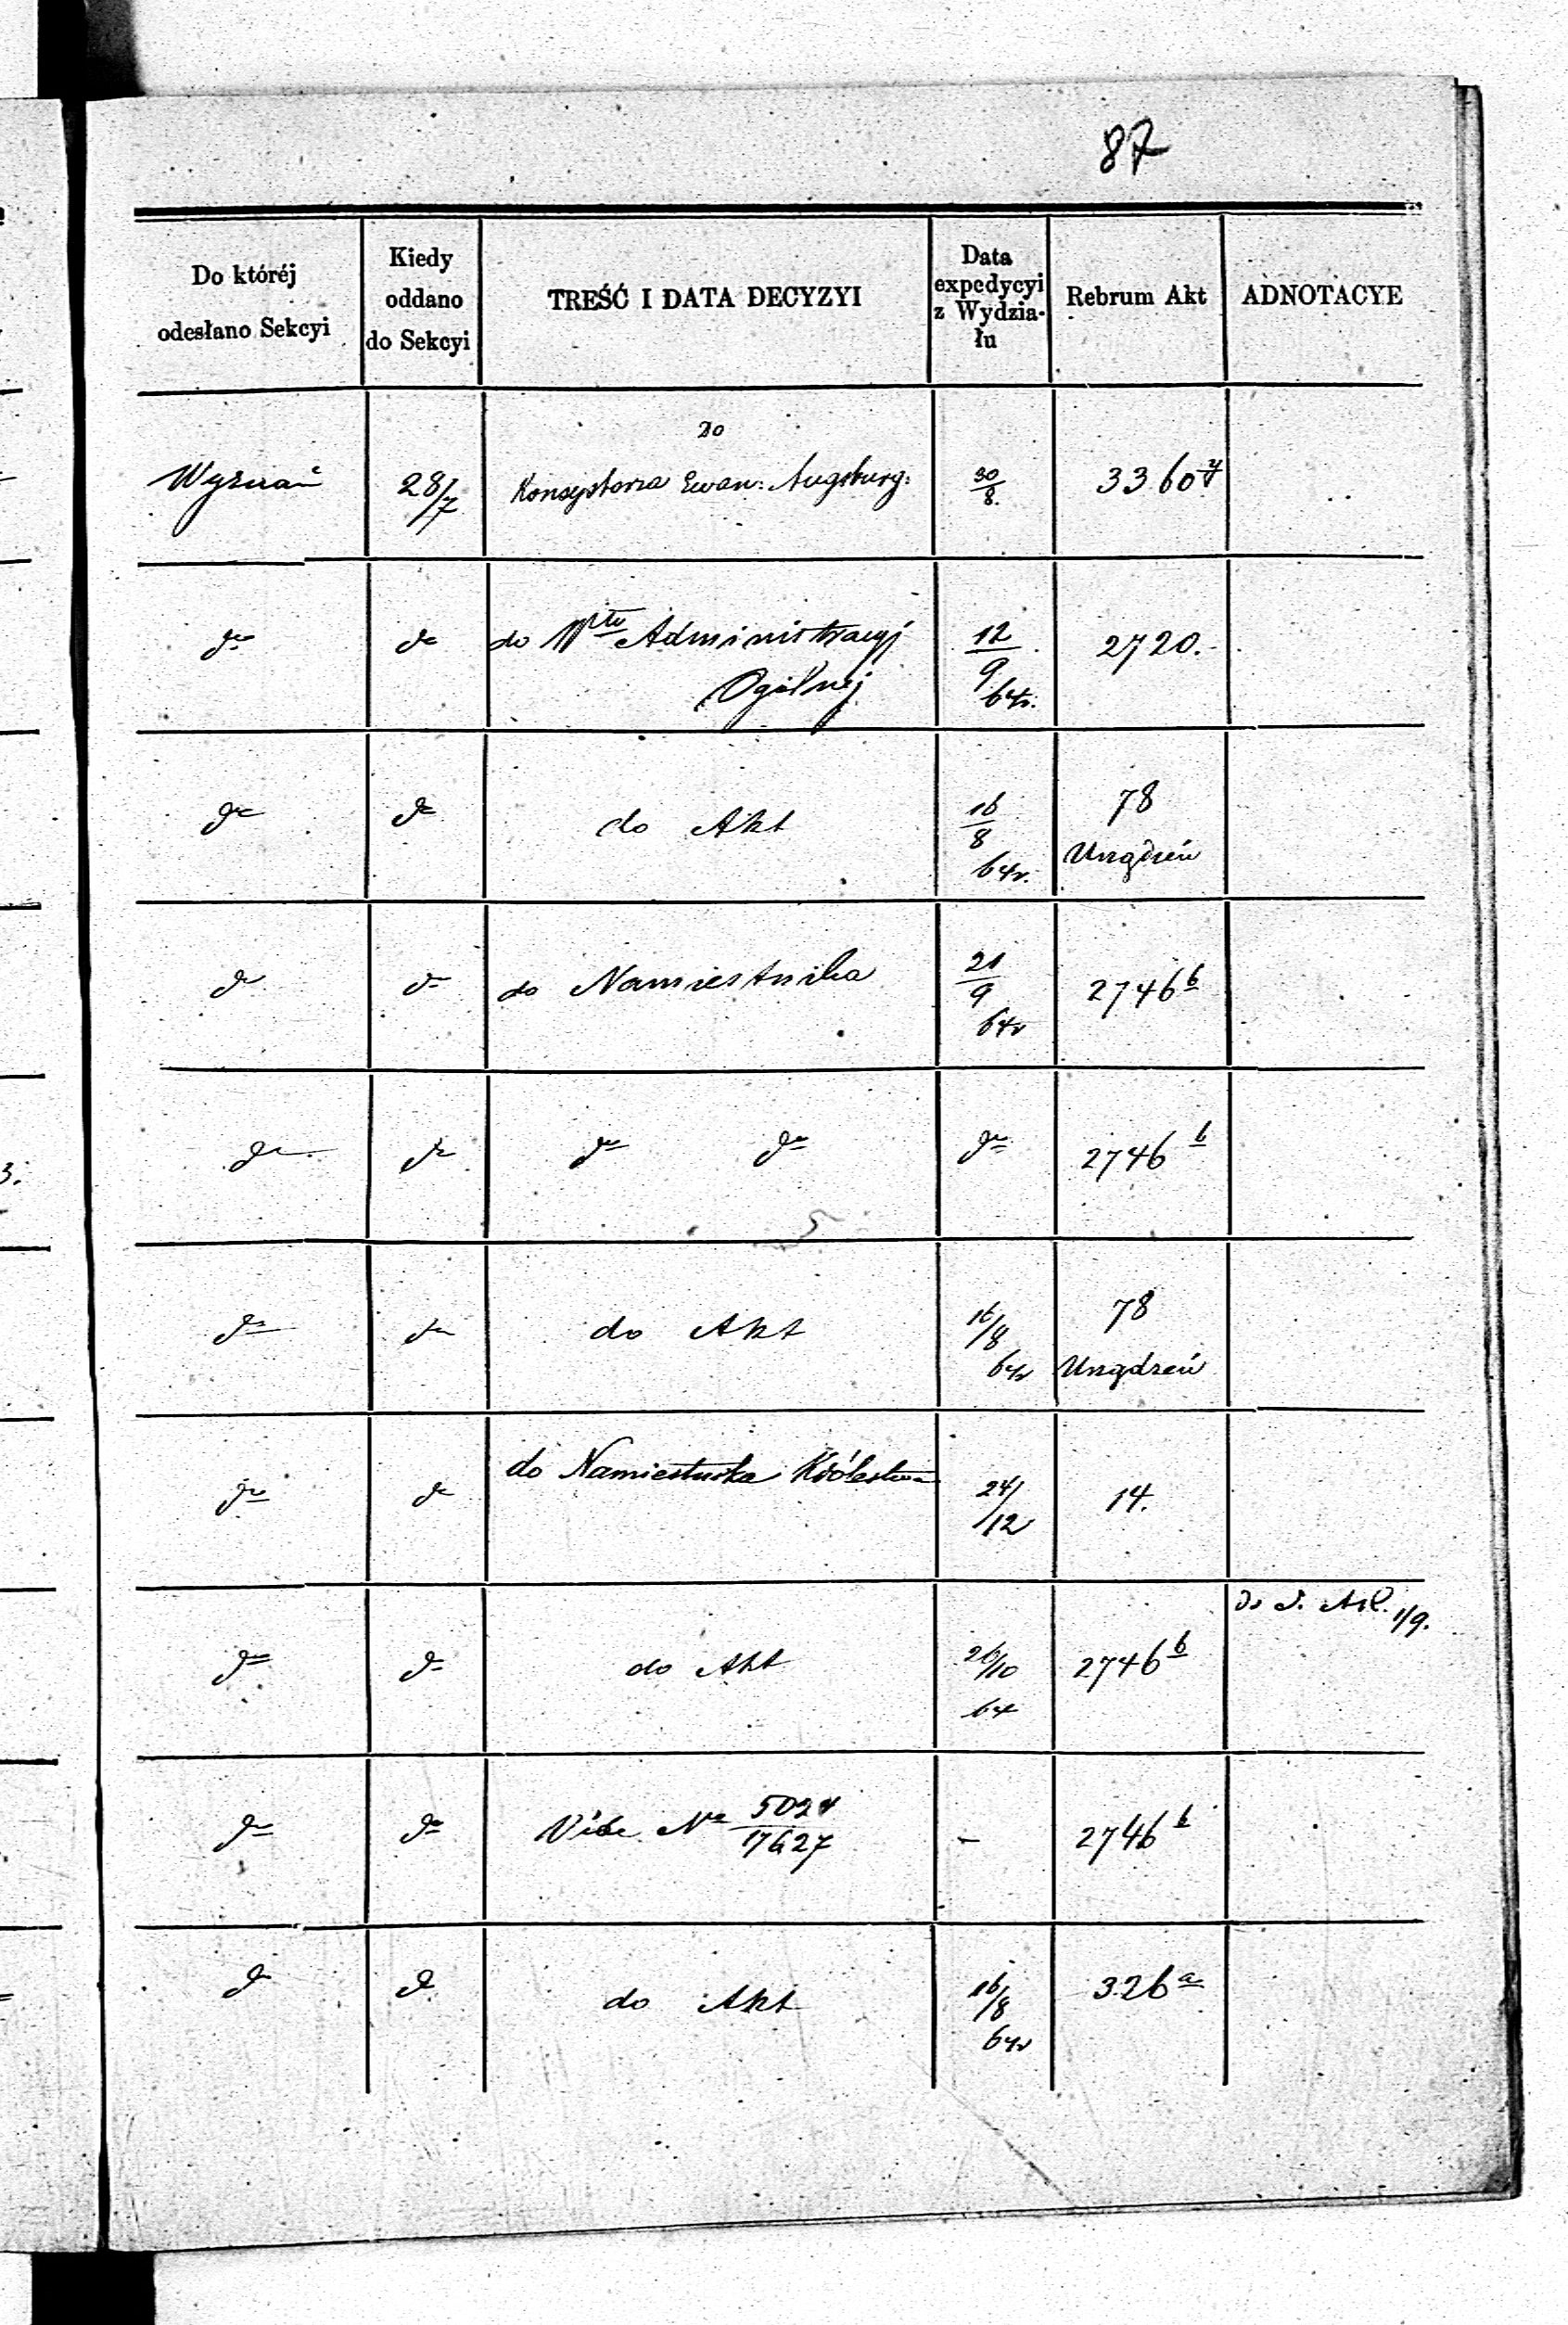 87
Do któréj odesłano Sekcyi | Kiedy oddano do Sekcyi | TREŚĆ I DATA DECYZYI | Data expedycyi z Wydziału | Rebrum Akt | ADNOTACYE
Wyznań | 28/7 | Do Konsystorza Ewan: Augsburg: | 30/8. | 3360
do | do | do Włu Administracyj Ogólnej | 12/9 64r. | 2720.
do | do | do Akt | 16/8 64r. | 78 Urządzeń
do | do | do Namiestnika | 21/9 64r | 2746 b
do | do | do do | do | 2746 b
do | do | do Akt | 16/8 64r | 78 Urządzeń
do | do | do Namiestnika Królestwa | 24/12 | 14.
do | do | do Akt | 26/10 64 | 2746 b | 1/9.
do | do | Vide No 5024/17627 | - | 2746 b
do | do | do Akt | 16/8 64r | 326 a
3.